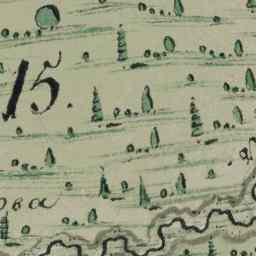 15.
ова